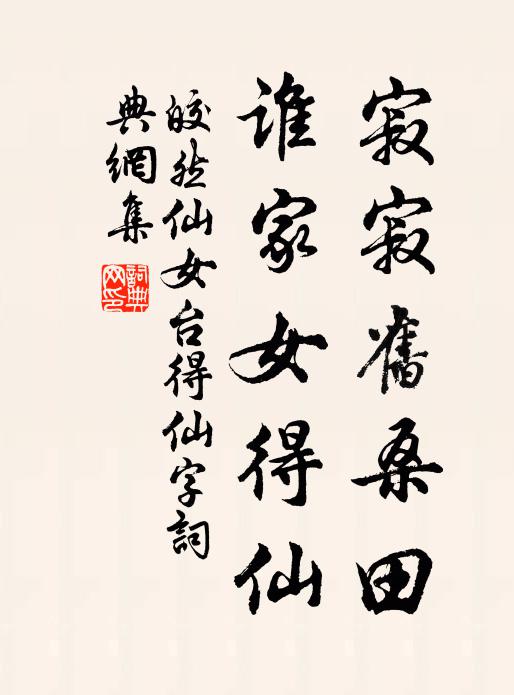 寂寂舊桑田
誰家女得仙
皎然仙女台得仙字詞
典網集
詞典網印